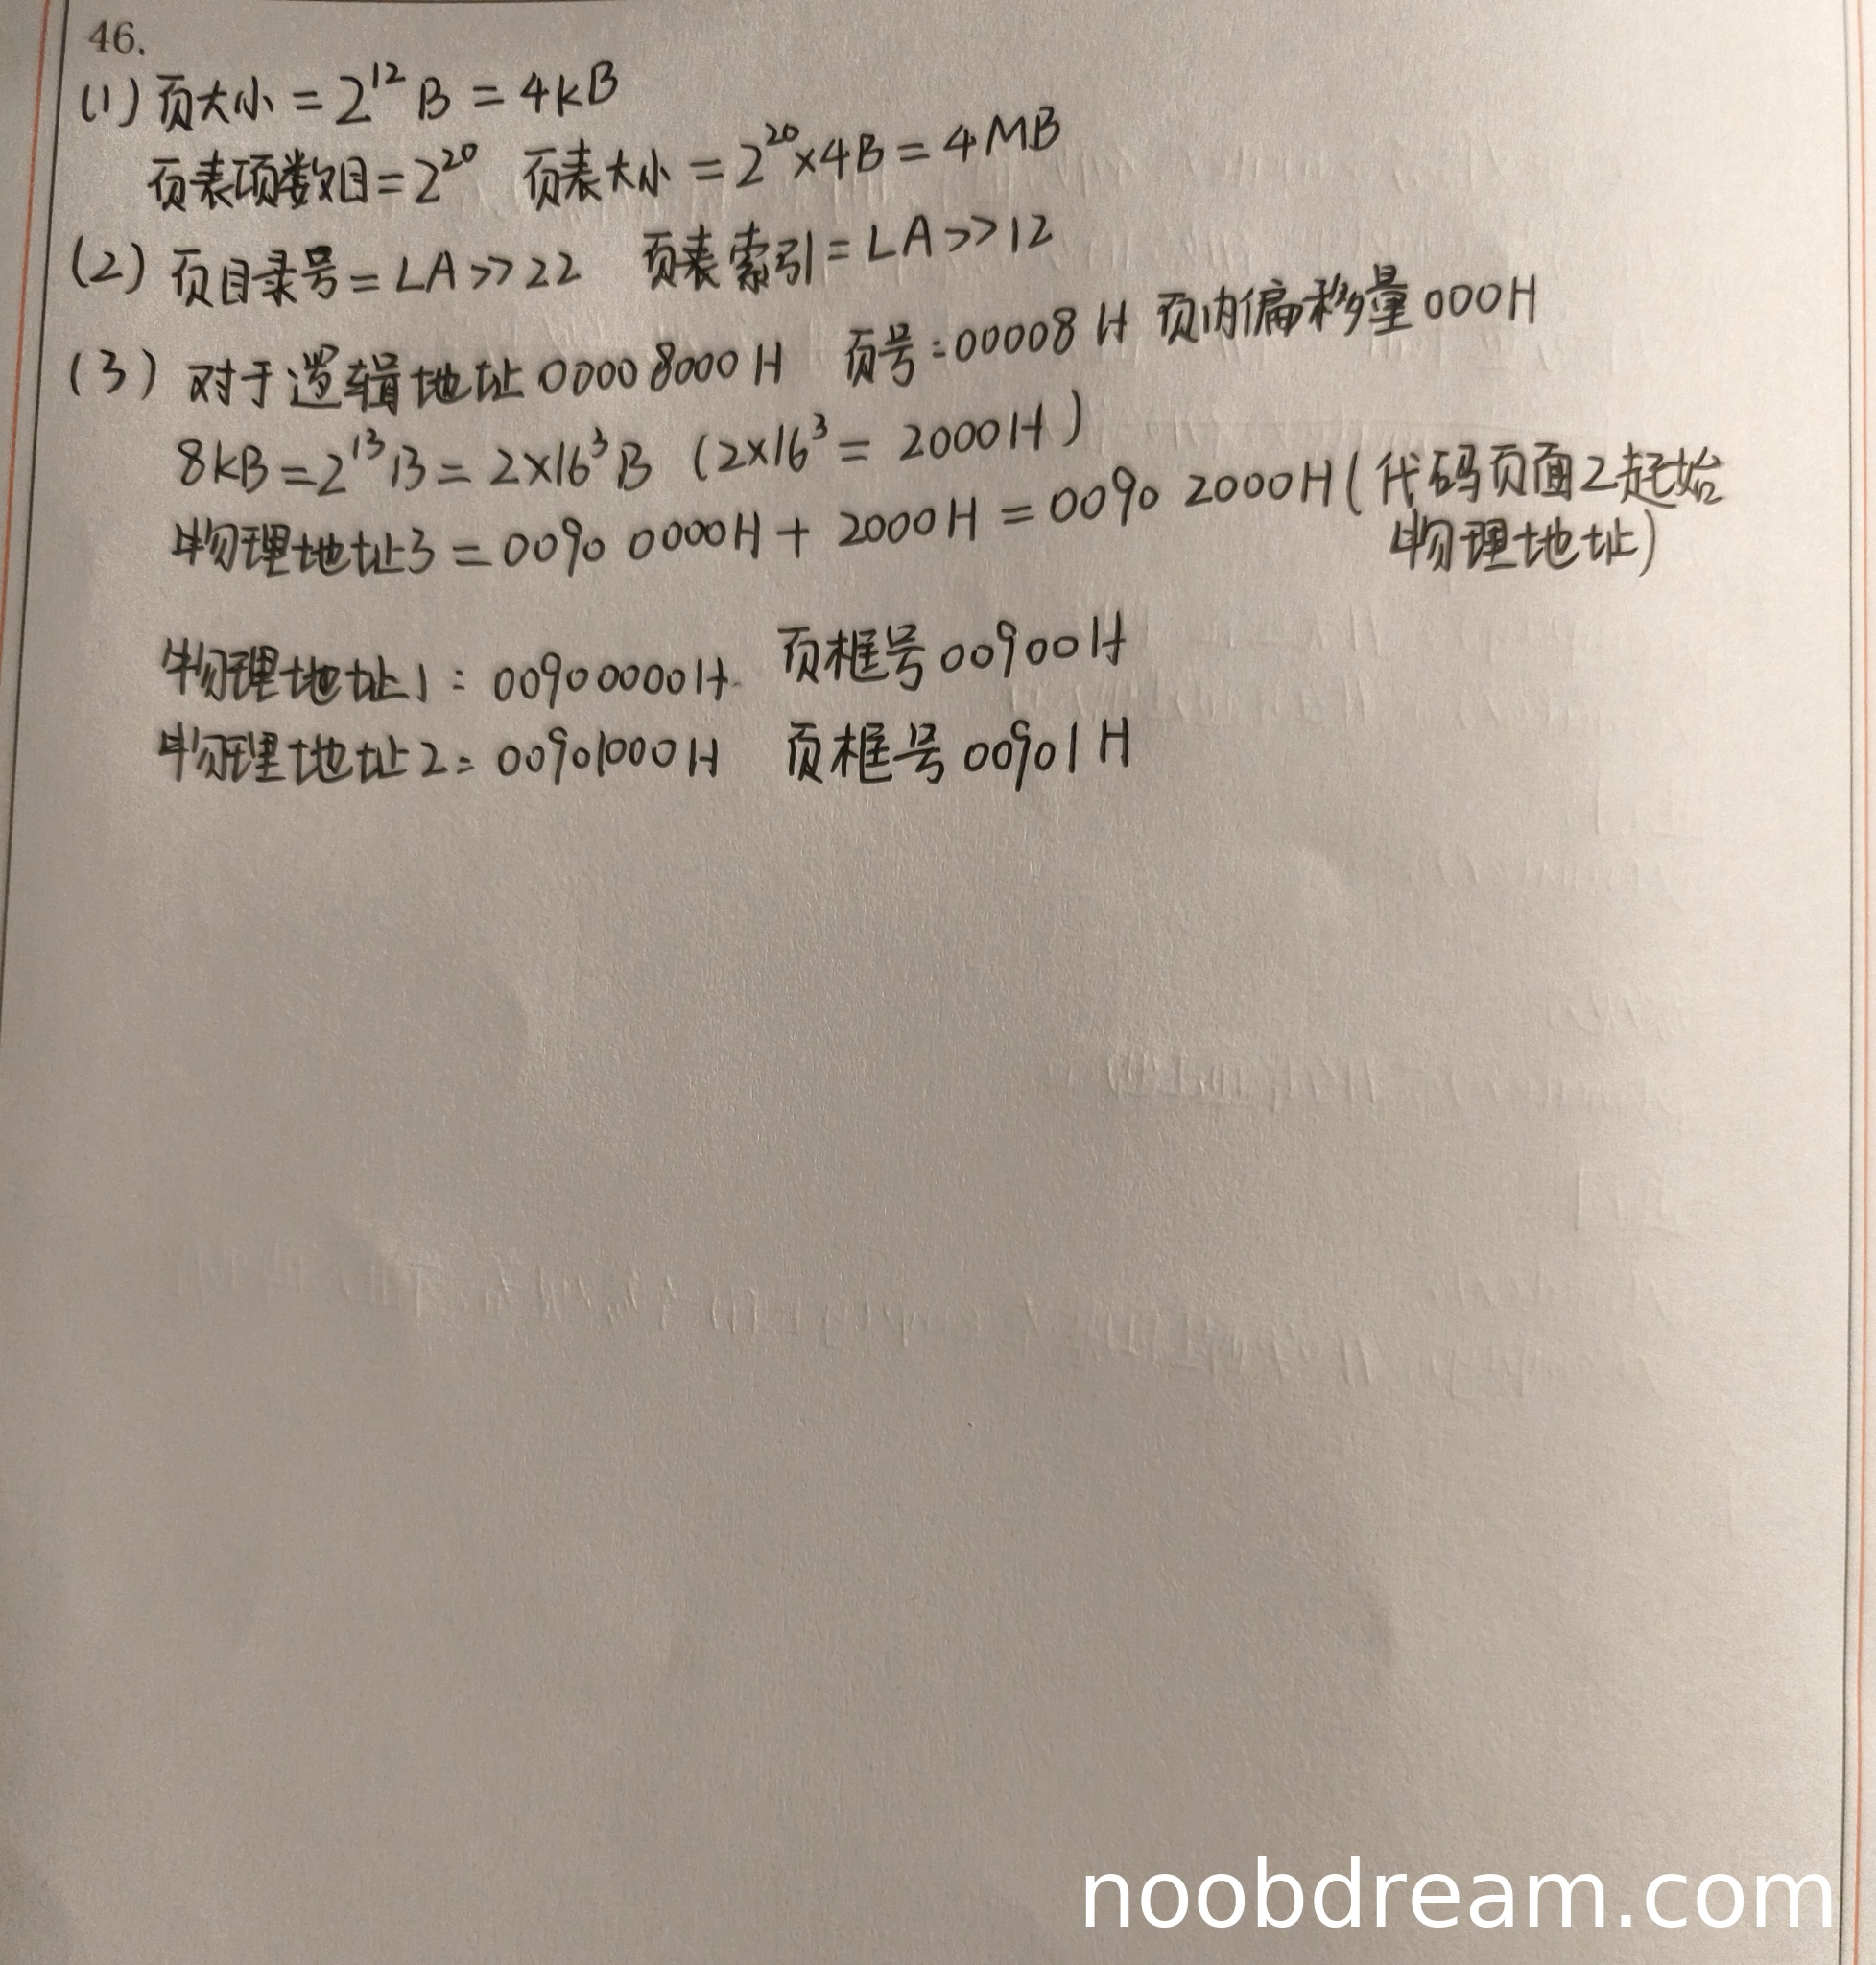 46.
(1) 页大小 = 2¹² B = 4kB
页表项数目 = 2²⁰ 页表大小 = 2²⁰×4B = 4MB
(2) 页目录号 = LA >> 22 页表索引 = LA >> 12
(3) 对于逻辑地址 00008000H 页号:00008H 页内偏移量 000H
8kB = 2¹³B = 2×16³B (2×16³ = 2000H)
物理地址3 = 0090 0000H + 2000H = 0090 2000H (代码页面2起始
物理地址)
物理地址1: 00900000H. 页框号 00900H
物理地址2: 00901000H 页框号 00901H
noobdream.com